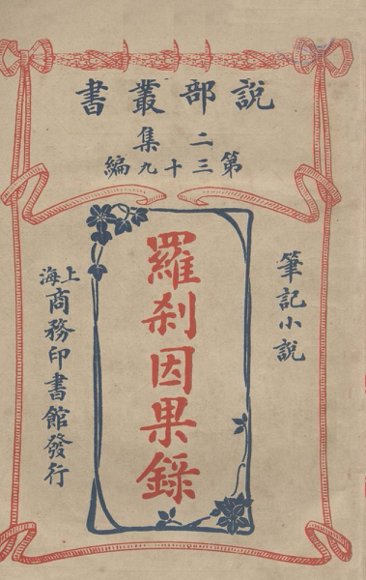 說部叢書
二集
第三十九編
筆記小說
羅刹因果錄
上海商務印書館發行